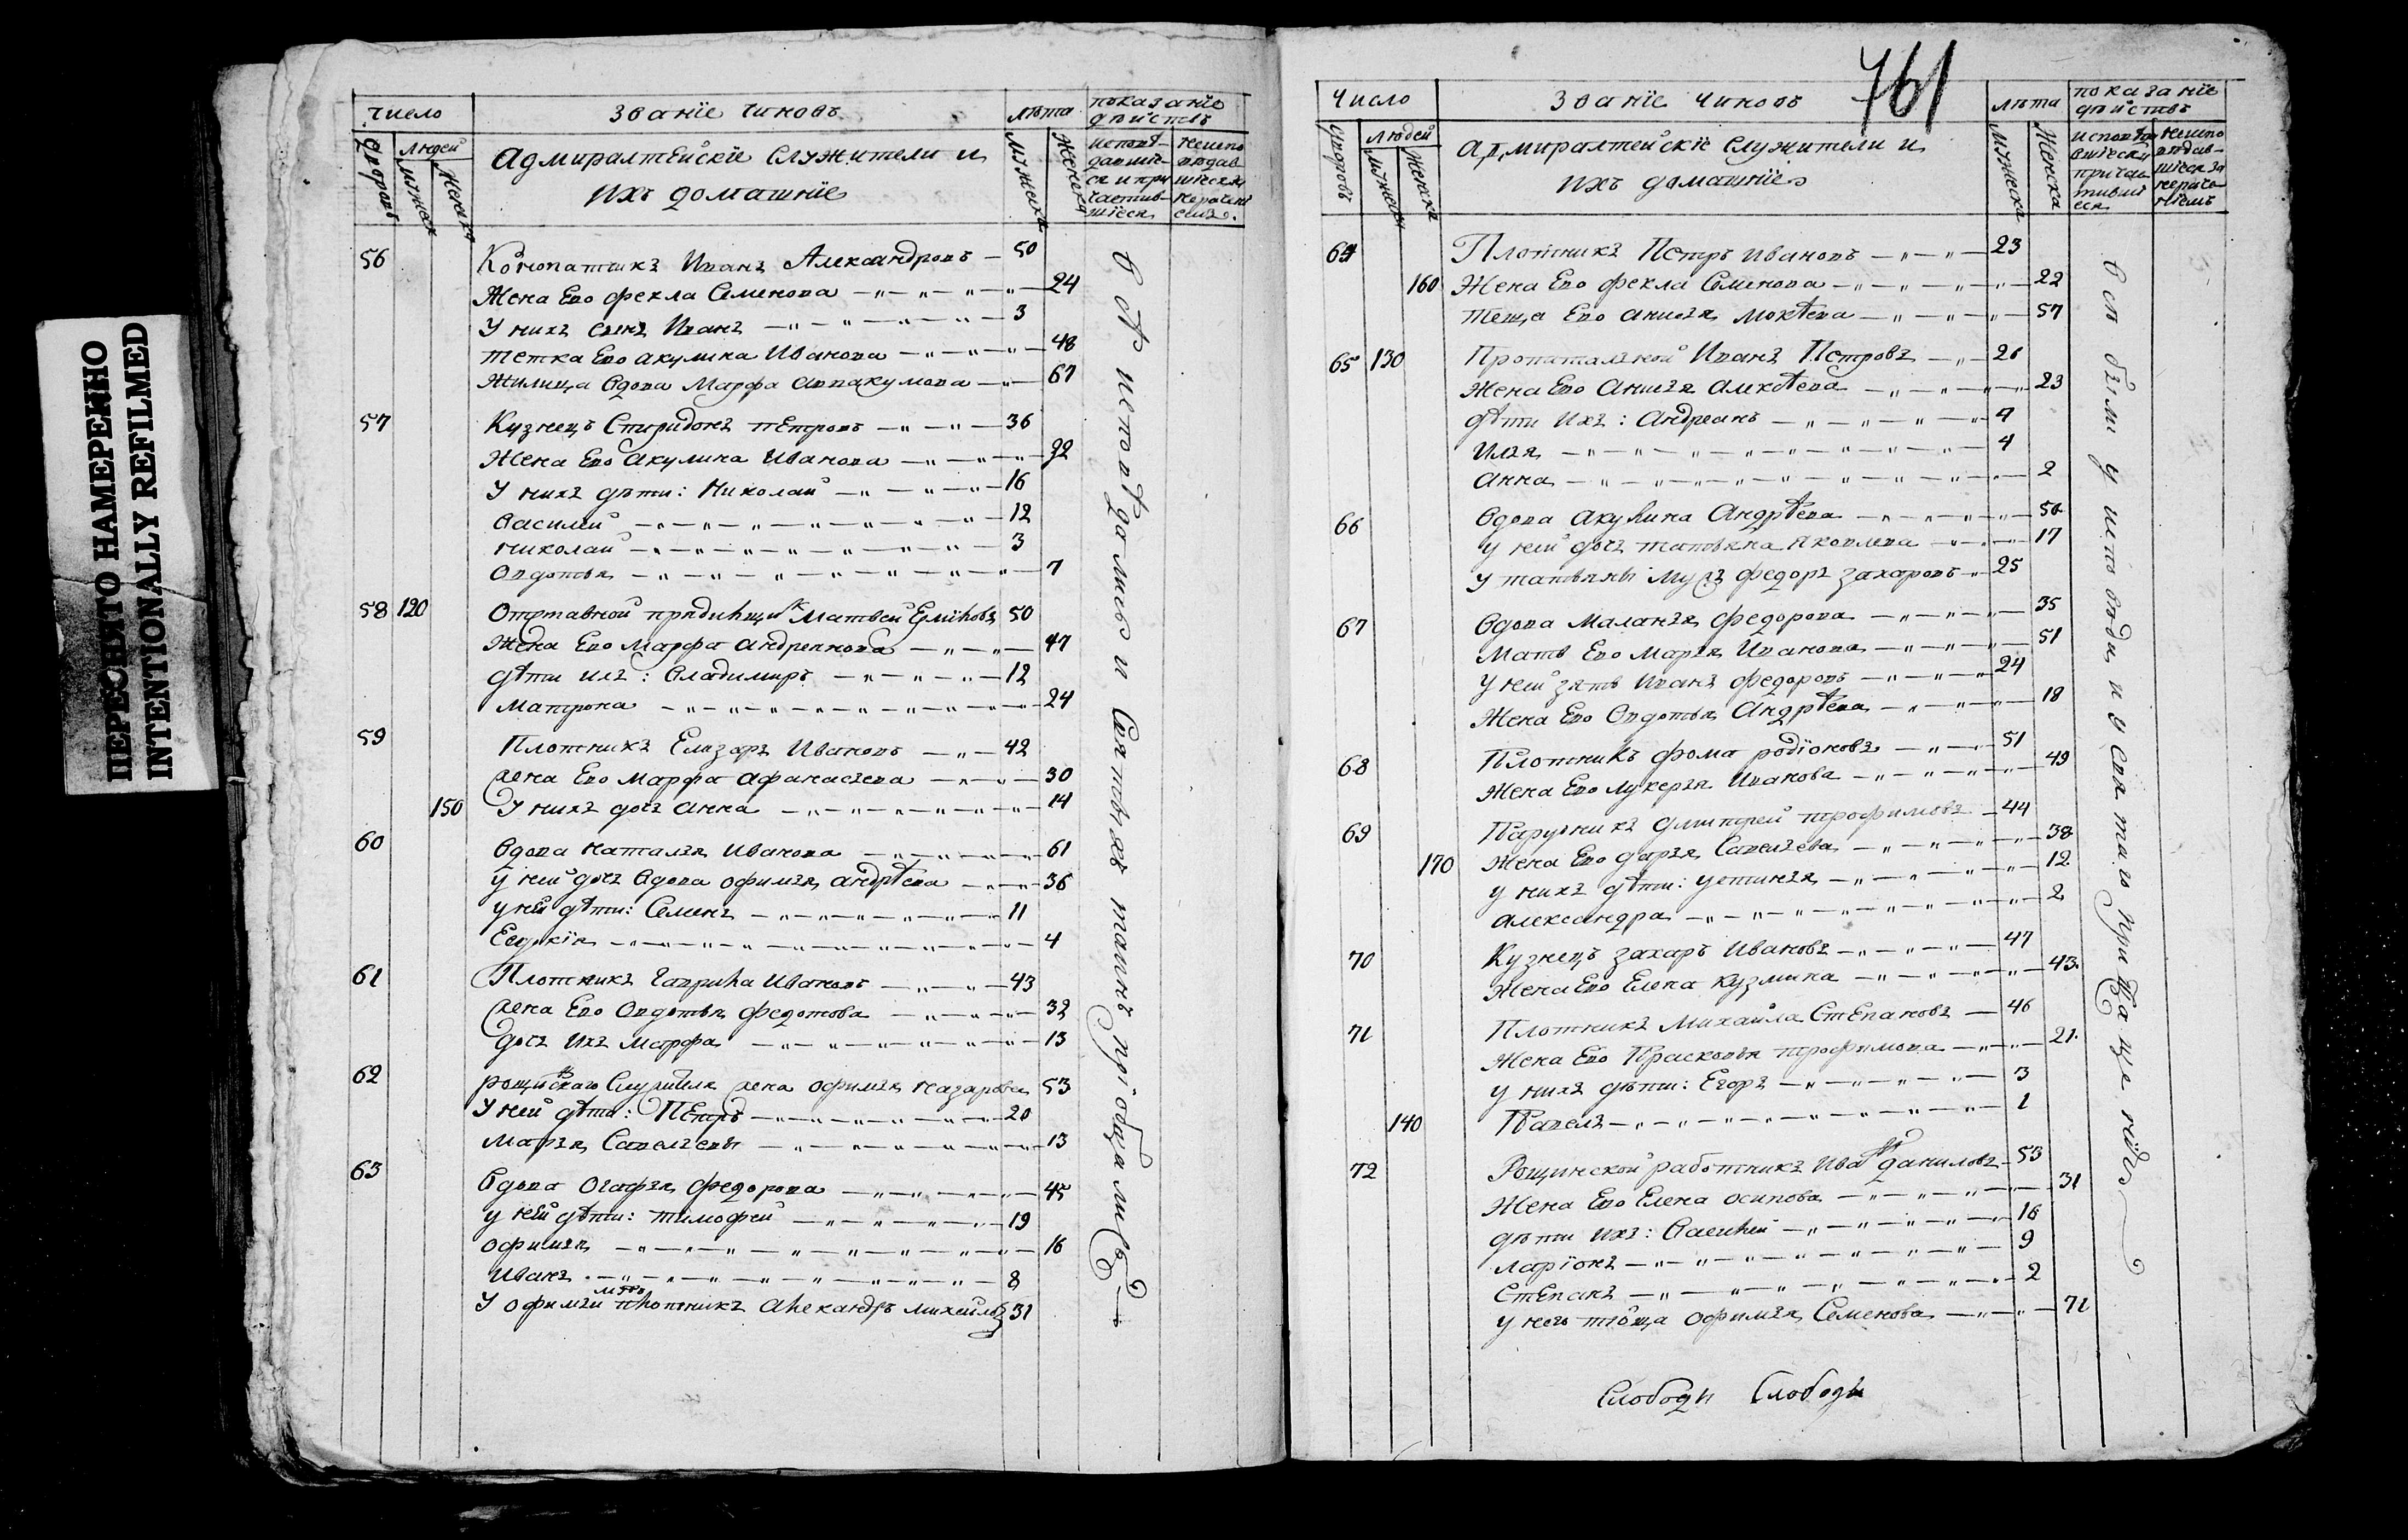 ПЕРЕСНЯТО НАМЕРЕННО
INTENTIONALLY REFILMED
число
званїе чиновъ
лѣта
показанїе дѣйствъ
дворовъ
людей
мужеск
женска
Адмиралтейскїе служители и
ихъ домашнїе
мужеска
женска
исповѣ-
давшіе-
ся и при
частив-
шїеся
неиспо
вѣдав-
шїеся за
нерачені
емъ
56 Конопатчикъ Иванъ Александровъ 50
Жена Ево Фекла Семенова 24
У нихъ сынъ Иванъ 3
Тетка Ево Акулина Иванова 48
Жилица вдова Марфа Аввакумова 67
57 Кузнецъ Спиридонъ Петровъ 36
Жена Ево Акулина Иванова 32
У нихъ дѣти: Николай 16
Василей 12
Николай 3
Овдотья 7
58 120 Отставной прядильщикъ Матвей 50
Жена Ево Марфа Андреянова 47
Дѣти ихъ: Владимиръ 12
Матрона 24
59 Плотникъ Елизаръ Ивановъ 42
Жена Ево Марфа Афанасьева 30
150 У нихъ дочь Анна 14
60 Вдова Наталья Иванова 61
У ней дочь вдова Офимья Андрѣева 36
У ней дѣти: Семенъ 11
Евдокїя 4
61 Плотникъ Гаврила Ивановъ 43
Жена Ево Овдотья Федотова 32
Дочь ихъ Марфа 13
62 Рощинскаго служителя жена Офимья Назарова 53
У ней дѣти: Петръ 20
Марья Савельевы 13
63 Вдова Огафья Федорова 45
У ней дѣти: Тимофей 19
Офимья 16
Иванъ 8
У Офимьи мужъ плотникъ Александръ Михайловъ 31
всѣ исповѣдались и святыхъ таинъ прїобщались
761
Число
Званїе чиновъ
лѣта
показанїе
дѣйствъ
дворовъ
людей
мужеск
женска
Адмиралтейскїе служители и
ихъ домашнїе
мужеска
женска
исповѣда
вшїеся и
причас
тивші
еся
неиспо
вѣдав-
шїеся за
нераче
нїемъ
64 Плотникъ Петръ Ивановъ 23
160 Жена Ево Фекла Семенова 22
Теща Ево Анисья Мокѣева 57
65 130 Иванъ Петровъ 26
Жена Ево Анисья Алексѣева 23
Дѣти ихъ: Андреанъ 4
Илья 4
Анна 2
66 Вдова Акулина Андрѣева 50
У ней дочь Татьяна Яковлева 17
У Татьяны мужъ Федоръ Захаровъ 25
67 Вдова Маланья Федорова 35
Мать Ево Марья Иванова 51
У ней зять Иванъ Федоровъ 24
Жена Ево Овдотья Андрѣева 18
68 Плотникъ Фома Родїоновъ 51
Жена Ево Лукерья Иванова 49
69 Парусникъ Дмитрей Трофимовъ 44
170 Жена Ево Дарья Савельева 38
У нихъ дѣти: Устинья 12
Александра 2
70 Кузнецъ Захаръ Ивановъ 47
Жена Ево Елена Кузмина 43
71 Плотникъ Михайла Степановъ 46
Жена Ево Прасковья Трофимова 21
У нихъ дѣти: Егоръ 3
140 Павелъ 1
72 Рощинской работникъ Иванъ Даниловъ 53
Жена Ево Елена Осипова 31
Дѣти ихъ: Василей 16
Ларїонъ 9
Степанъ 2
У него тїоща Офимья Семенова 71
всѣ были у исповѣди и у святаго причащенїя
Слободы Слободы